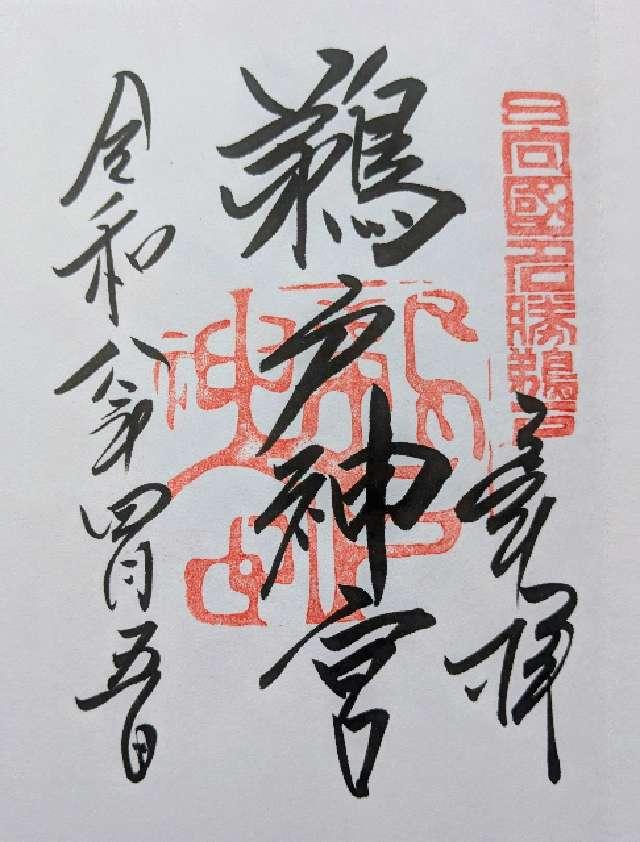 日向國名勝鵜戸
奉拝
鵜戸神宮
鵜戸神宮
令和八年四月五日